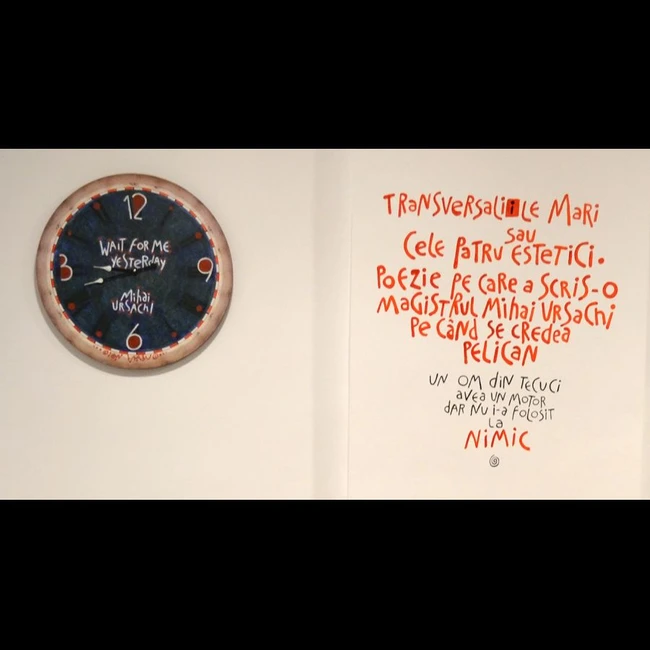 12
WAIT FOR ME
YESTERDAY
3
9
Mihai
URSACHI
6
TRANSVERSALiiLE Mari
sau
Cele PATRU ESTETICI.
POEZIE PE CARE a SCRIS-O
MAGISTRUL Mihai URSACHI
PE CÂND SE CREDEA
PELICAN
UN OM diN TECUCI
AVEA UN MOTOR
DAR NU i-a FOLOSIT
La
NIMIC